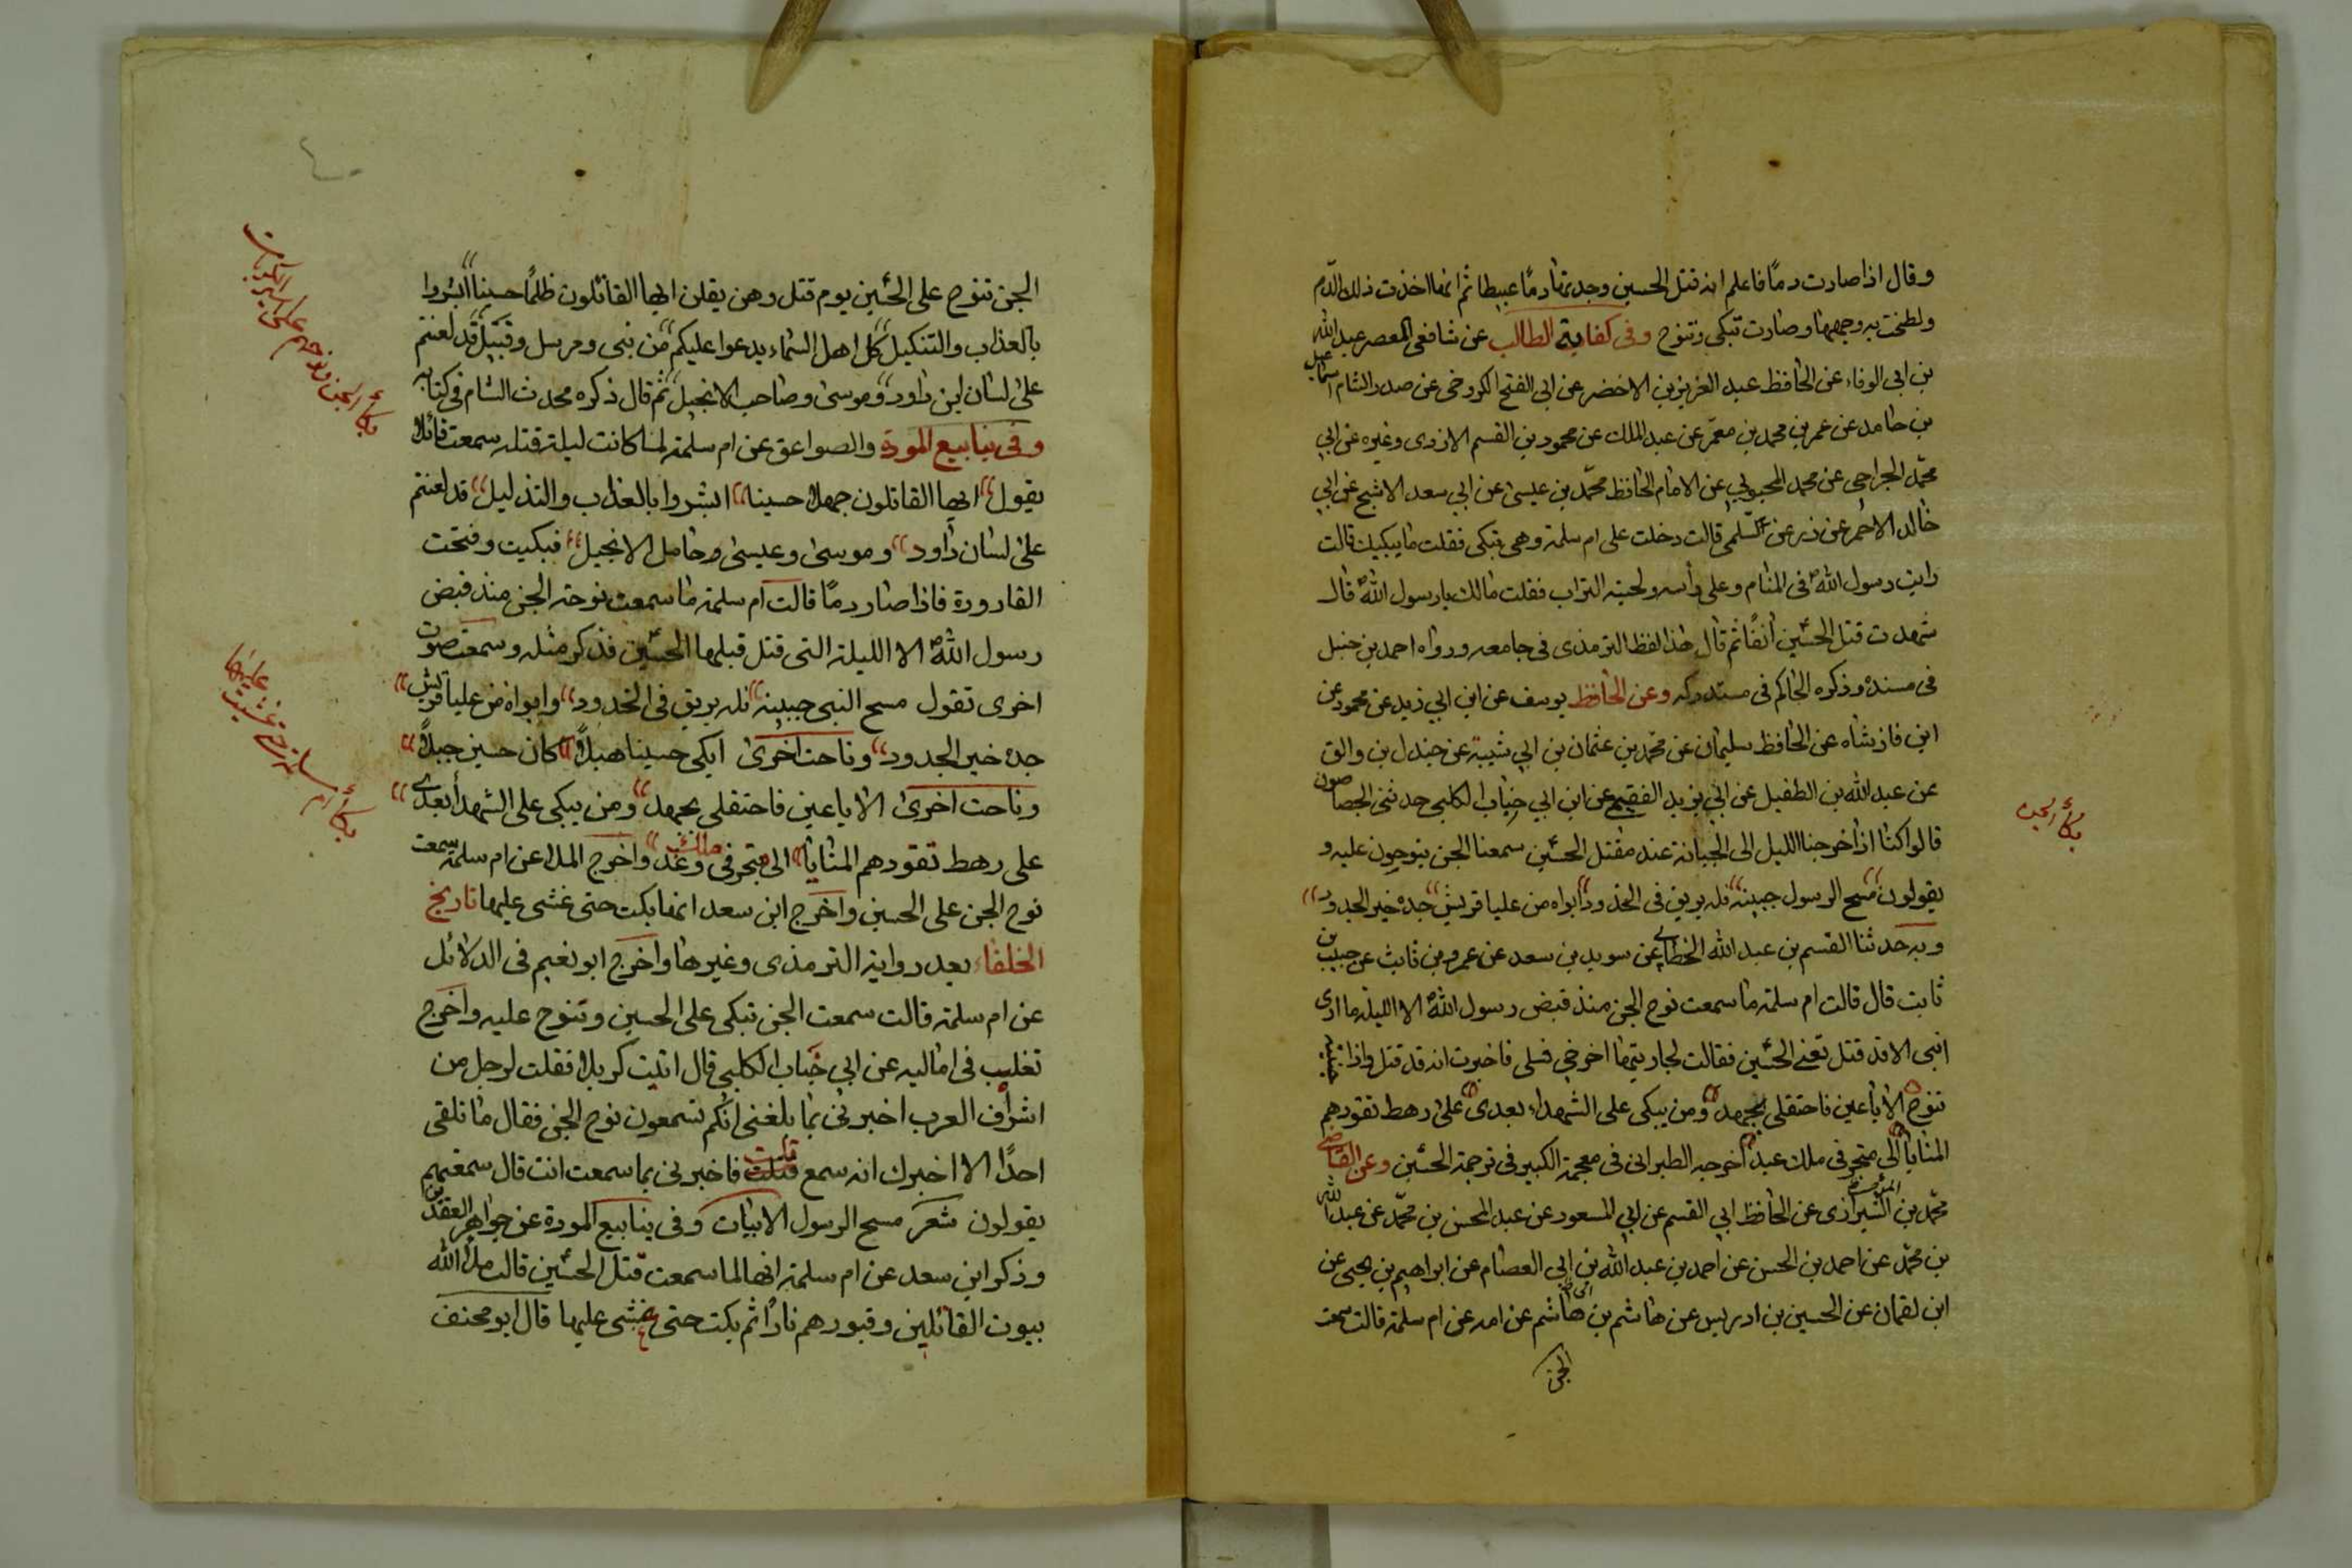 وقال اذا صارت دمًا فاعلم انه قتل الحسين وجد بها دمًا عبيطا ثم انها اخذت ذلك الدّم
ولطخت به وجهها وصارت تبكى وتنوح وفى كفاية الطالب عن شافعى العصر عبد الله
بن ابى الوفاء عن الحافظ عبد العزيز بن الاخضر عن ابى الفتح الكروخى عن صدر الشام اسماعيل
بن حامد عن عمر بن محمد بن معمّر عن عبد الملك عن محمود بن القسم الازدى وغيره عن ابى
محمّد الجراحى عن محمد المحبوبى عن الامام الحافظ محمّد بن عيسى عن ابى سعد الاشج عن ابى
خالد الاحمر عن زر عن السّلمى قالت دخلت على ام سلمة وهى تبكى فقلت ما يبكيك قالت
رايت رسول الله فى المنام وعلى رأسه ولحيته التراب فقلت مالك يا رسول الله قال
شهدت قتل الحسين آنفًا ثم قال هذا لفظ الترمذى فى جامعه ورواه احمد بن حنبل
فى مسنده وذكره الحاكم فى مستدركه وعن الحافظ يوسف عن ابن ابى زيد عن محمود عن
ابن فاذشاه عن الحافظ سليمان عن محمّد بن عثمان بن ابى شيبة عن جندل بن والق
عن عبد الله بن الطفيل عن ابى يزيد الفقيمى عن ابن ابى جناب الكلبى حدثنى الجصاصون
قالوا كنا اذا خرجنا الليل الى الجبانة عند مقتل الحسين سمعنا الجن ينوحون عليه و
يقولون مسح الرسول جبينه فله بريق فى الخدود ابواه من عليا قريش جده خير الجدود
وبه حدثنا القسم بن عبد الله الخطابى عن سويد بن سعد عن عمرو بن ثابت عن حبيب بن
ثابت قال قالت ام سلمة ما سمعت نوح الجن منذ قبض رسول الله الا الليلة ما ارى
ابنى الا قد قتل تعنى الحسين فقالت لجاريتها اخرجى فسلى فاخبرت انه قد قتل واذا
تنوح الا يا عين فاحتفلى بجهد ومن يبكى على الشهداء بعدى على رهط تقودهم
المنايا الى متجبر فى ملك عبد اخرجه الطبرانى فى معجمه الكبير فى ترجمة الحسين وعن القاضى
محمّد بن الشيرازى عن الحافظ ابى القسم عن ابى المسعود عن عبد المحسن بن محمّد عن عبد الله
بن محمّد عن احمد بن الحسن عن احمد بن عبد الله بن ابى العصام عن ابراهيم بن يحيى عن
ابن لقمان عن الحسين بن ادريس عن هاشم بن هاشم عن امه عن ام سلمة قالت سمعت
الجن
بكاء الجن
الجن تنوح على الحسين يوم قتل وهن يقلن ايها القاتلون ظلمًا حسينا ابشروا
بالعذاب والتنكيل كل اهل السماء يدعوا عليكم من نبى ومرسل وقبيل قد لعنتم
على لسان ابن داود وموسى وصاحب الانجيل ثم قال ذكره محدث الشام فى كتابه
وفى ينابيع المودة والصواعق عن ام سلمة لما كانت ليلة قتله سمعت قائلا
يقول ايها القاتلون جهلا حسينا ابشروا بالعذاب والتذليل قد لعنتم
على لسان داود وموسى وعيسى وحامل الانجيل فبكيت وفتحت
القارورة فاذا صار دمًا قالت ام سلمة ما سمعت نوحة الجن منذ قبض
رسول الله الا الليلة التى قتل قبلها الحسين فذكر مثله وسمعت صوت
اخرى تقول مسح النبى جبينه فله بريق فى الخدود وابواه من عليا قريش
جده خير الجدود وناحت اخرى ابكى حسينا هبلا كان حسين جبلا
وناحت اخرى الا يا عين فاحتفلى بجهد ومن يبكى على الشهدا بعدى
على رهط تقودهم المنايا الى متجبر فى وغد واخرج الملا عن ام سلمة سمعت
نوح الجن على الحسين واخرج ابن سعد انها بكت حتى غشى عليها تاريخ
الخلفاء بعد رواية الترمذى وغيرها واخرج ابو نعيم فى الدلائل
عن ام سلمة قالت سمعت الجن تبكى على الحسين وتنوح عليه واخرج
تغلب فى اماليه عن ابى جناب الكلبى قال اتيت كربلا فقلت لرجل من
اشراف العرب اخبرنى بما بلغنى انكم تسمعون نوح الجن فقال ما تلقى
احدًا الا اخبرك انه سمع قلت فاخبرنى بما سمعت انت قال سمعتهم
يقولون شعر مسح الرسول الابيات وفى ينابيع المودة عن جواهر العقدين
وذكر ابن سعد عن ام سلمة انها لما سمعت قتل الحسين قالت ملأ الله
بيوت القاتلين وقبورهم نارًا ثم بكت حتى غشى عليها قال ابو مخنف